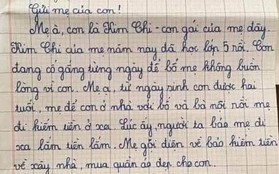 Gửi mẹ của con!
Mẹ à, con là Kim Chi - con gái của mẹ đây.
Kim Chi của mẹ năm nay đã học lớp 5 rồi. Con
đang cố gắng từng ngày để bố mẹ không buồn
lòng vì con. Mẹ ạ, từ ngày sinh con được hai
tuổi, mẹ để con ở nhà với bố và bà nội rồi mẹ
đi kiếm tiền ở xa. Lúc ấy, người ta bảo mẹ đi
xa lắm tiền lắm. Mẹ gửi điện về bảo kiếm tiền
về xây nhà, mua quần áo đẹp cho con.